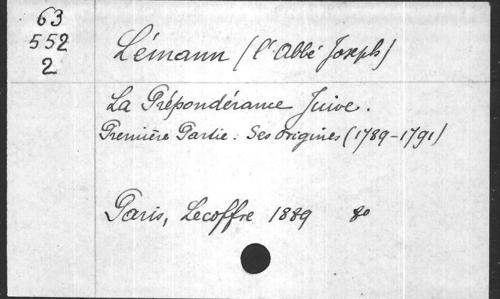 63
552
2
Lémann (l'Abbé Joseph)
La Prépondérance Juive.
Première Partie. Ses origines (1789-1791)
Paris, Lecoffre 1889 8o